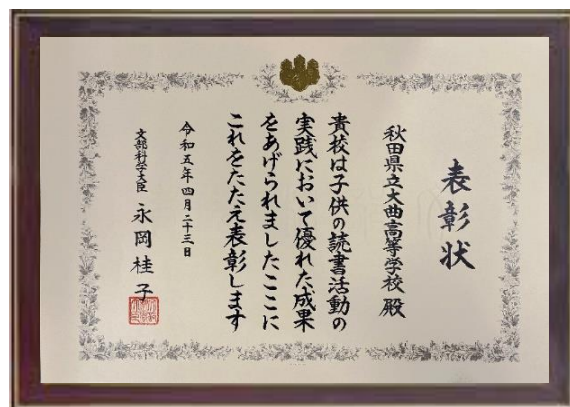 表彰状
秋田県立大曲高等学校 殿
貴校は子供の読書活動の
実践において優れた成果
をあげられましたここに
これをたたえ表彰します
令和五年四月二十三日
文部科学大臣 永岡桂子